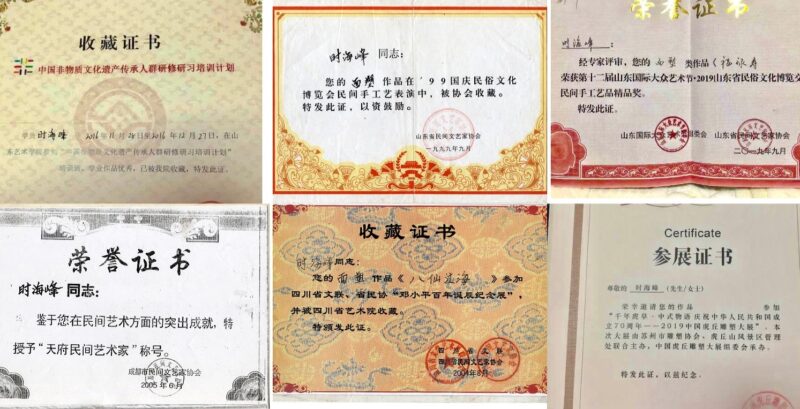 收藏证书
中国非物质文化遗产传承人群研修研习培训计划
学员 时海峰 2016年11月28日至2016年12月27日，在山
东艺术学院参加“中国非物质文化遗产传承人群研修研习培训计划”
培训班，毕业作品优秀，已被我院收藏，特发此证。
时海峰 同志：
您的 面塑 作品在'99国庆民俗文化
博览会民间手工艺表演中，被协会收藏。
特发此证，以资鼓励。
山东省民间文艺家协会
一九九九年九月
荣誉证书
时海峰：
经专家评审，您的 面塑 类作品《福禄寿
荣获第十二届山东国际大众艺术节·2019山东省民俗文化博览交
民间手工艺品精品奖。
特发此证！
山东国际大众艺术节组委会 山东省民间文艺家协会
二〇一九年九月
荣誉证书
时海峰 同志：
鉴于您在民间艺术方面的突出成就，特
授予“天府民间艺术家”称号。
成都市民间文艺家协会
2005年6月
收藏证书
时海峰同志：
您的 面塑 作品《八仙过海》参加
四川省文联、省民协“邓小平百年诞辰纪念展”，
并被四川省艺术院收藏。
特颁发此证。
四川省文联
四川省民间文艺家协会
2004年8月
Certificate
参展证书
尊敬的 时海峰 (先生/女士)
荣幸邀请您的作品 参加
“千年虎阜·中式物语庆祝中华人民共和国成
立70周年——2019中国虎丘雕塑大展”。本
次大展由苏州市雕塑协会、虎丘山风景区管理
处联合主办，中国虎丘雕塑大展组委会承办。
特发此证，以兹纪念。